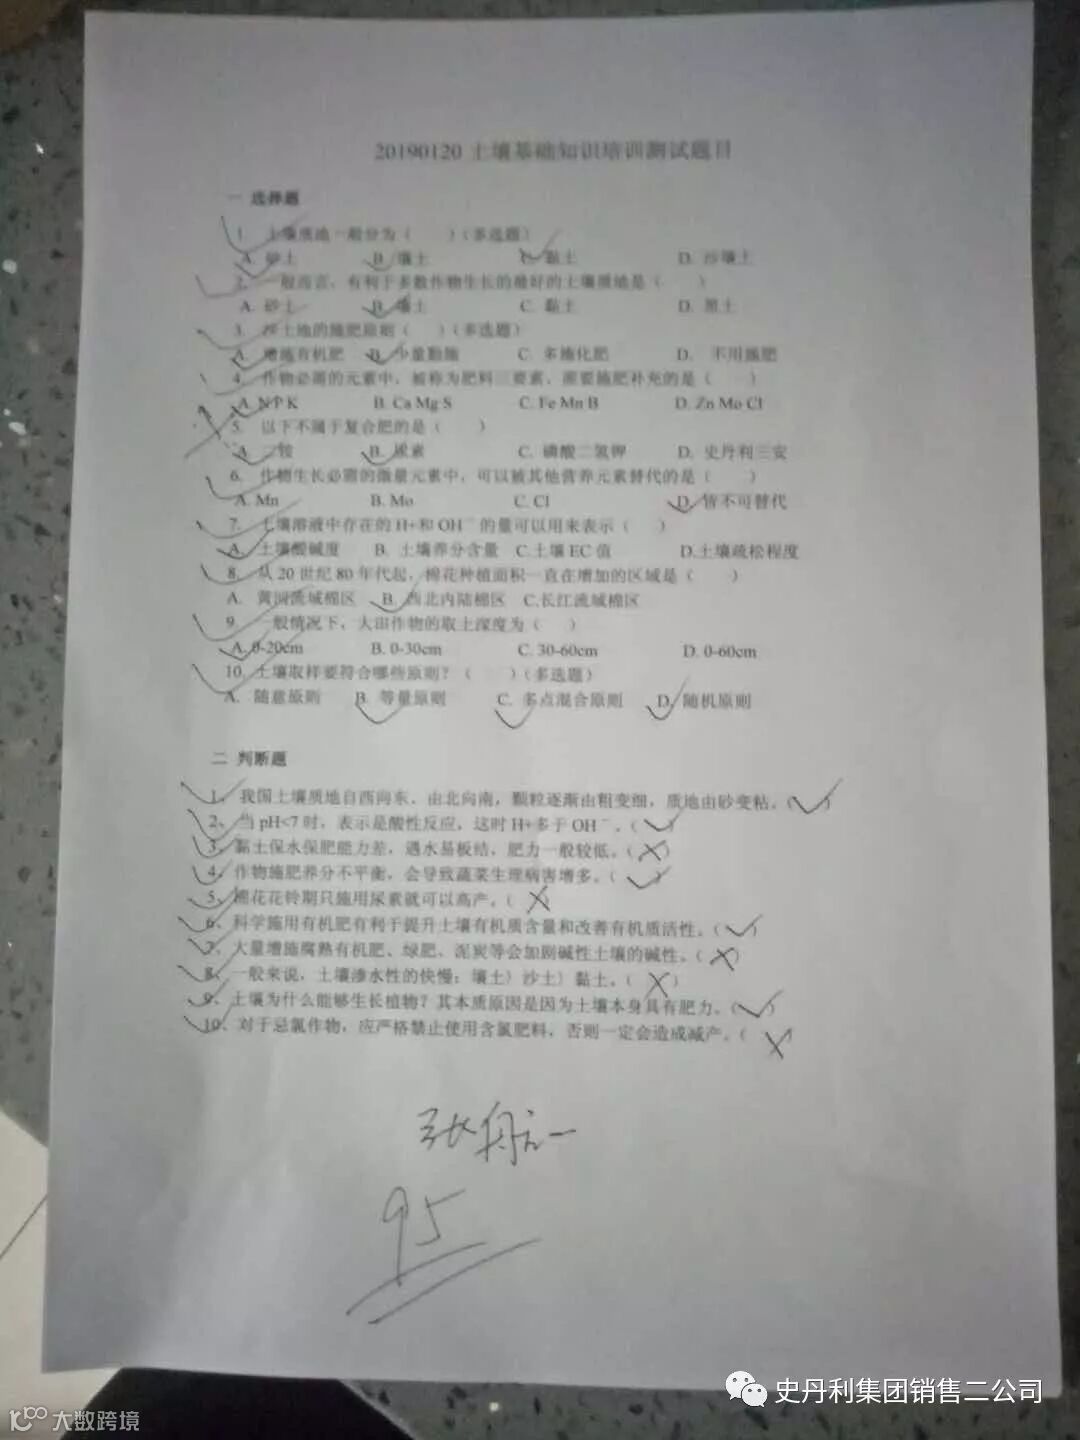 20190120 土壤基础知识培训测试题目
一 选择题
1. 土壤质地一般分为（ ）（多选题）
A. 砂土 B. 壤土 C. 黏土 D. 沙壤土
2. 一般而言，有利于多数作物生长的最好的土壤质地是（ ）
A. 砂土 B. 壤土 C. 黏土 D. 黑土
3. 沙土地的施肥原则（ ）（多选题）
A. 增施有机肥 B. 少量勤施 C. 多施化肥 D. 不用施肥
4. 作物必需的元素中，被称为肥料三要素，需要施肥补充的是（ ）
A. N P K B. Ca Mg S C. Fe Mn B D. Zn Mo Cl
5. 以下不属于复合肥的是（ ）
A. 二铵 B. 尿素 C. 磷酸二氢钾 D. 史丹利三安
6. 作物生长必需的微量元素中，可以被其他营养元素替代的是（ ）
A. Mn B. Mo C. Cl D. 皆不可替代
7. 土壤溶液中存在的 H+和 OH⁻ 的量可以用来表示（ ）
A. 土壤酸碱度 B. 土壤养分含量 C.土壤 EC 值 D.土壤疏松程度
8. 从 20 世纪 80 年代起，棉花种植面积一直在增加的区域是（ ）
A. 黄河流域棉区 B. 西北内陆棉区 C.长江流域棉区
9. 一般情况下，大田作物的取土深度为（ ）
A. 0-20cm B. 0-30cm C. 30-60cm D. 0-60cm
10. 土壤取样要符合哪些原则？（ ）（多选题）
A. 随意原则 B. 等量原则 C. 多点混合原则 D. 随机原则
二 判断题
1、我国土壤质地自西向东，由北向南，颗粒逐渐由粗变细，质地由砂变粘。（✓）
2、当 pH<7 时，表示是酸性反应，这时 H+多于 OH⁻。（✓）
3、黏土保水保肥能力差，遇水易板结，肥力一般较低。（×）
4、作物施肥养分不平衡，会导致蔬菜生理病害增多。（✓）
5、棉花花铃期只施用尿素就可以高产。（×）
6、科学施用有机肥有利于提升土壤有机质含量和改善有机质活性。（✓）
7、大量增施腐熟有机肥、绿肥、泥炭等会加剧碱性土壤的碱性。（×）
8、一般来说，土壤渗水性的快慢：壤土〉沙土〉黏土。（×）
9、土壤为什么能够生长植物？其本质原因是因为土壤本身具有肥力。（✓）
10、对于忌氯作物，应严格禁止使用含氯肥料，否则一定会造成减产。（×）
张航一
95
史丹利集团销售二公司
大数跨境